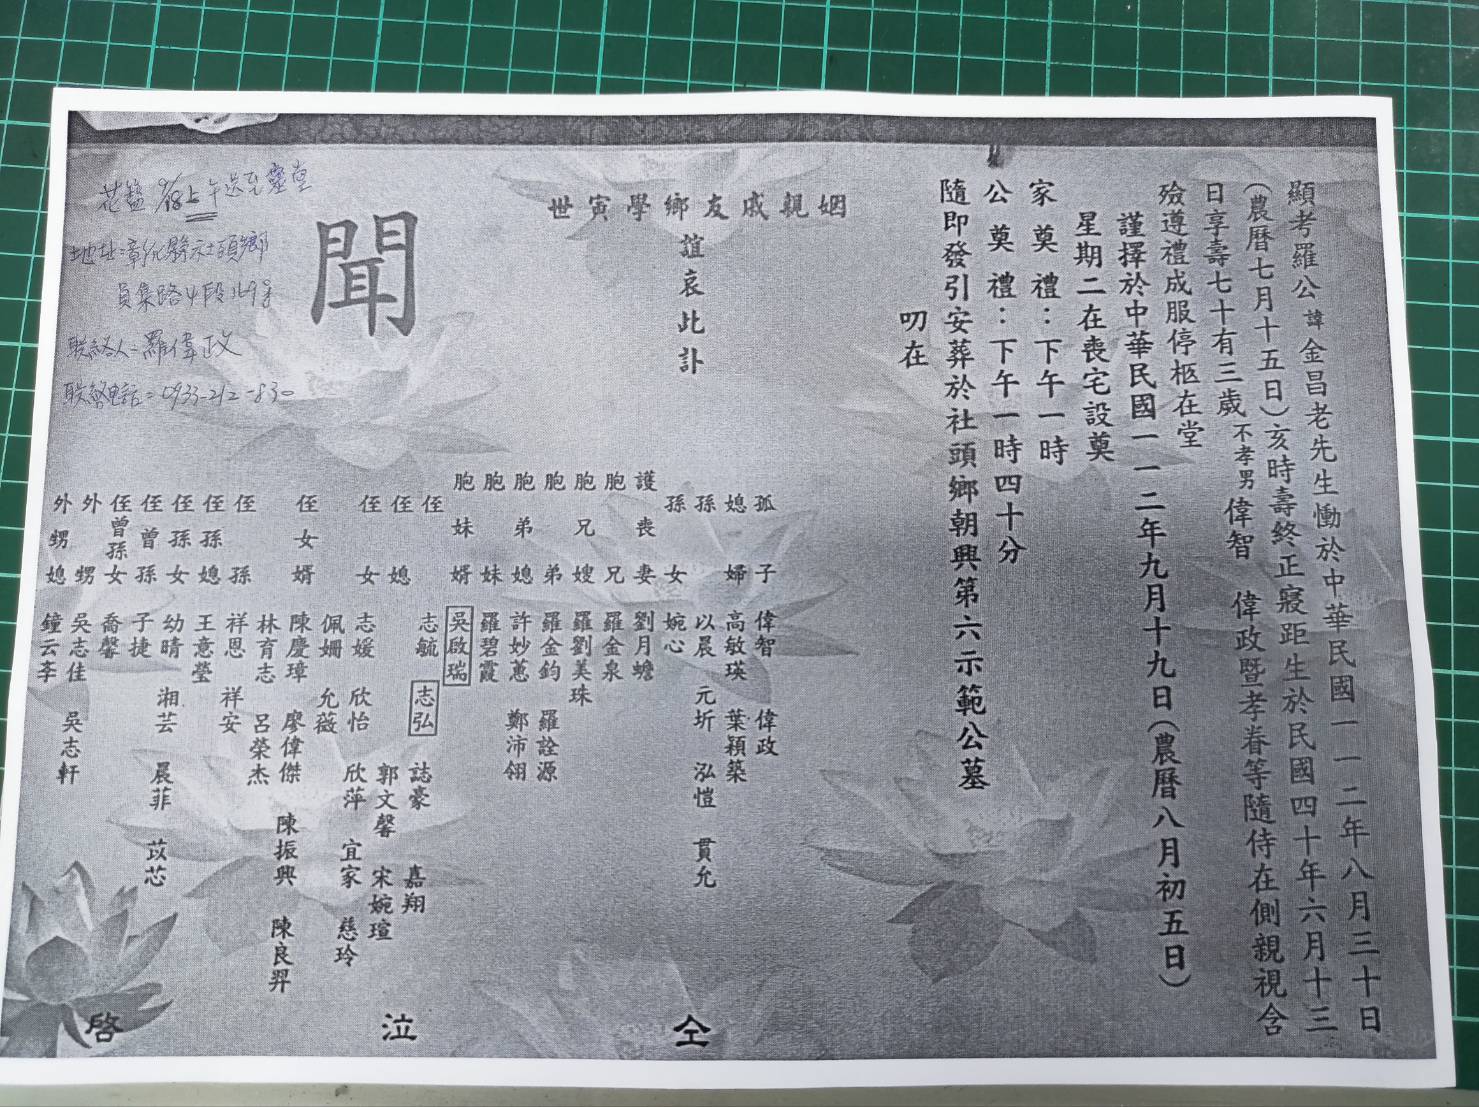 顯考羅公諱金昌老先生慟於中華民國一一二年八月三十日
(農曆七月十五日)亥時壽終正寢距生於民國四十年六月十三
日享壽七十有三歲不孝男偉智 偉政暨孝眷等隨侍在側親視含
殮遵禮成服停柩在堂
謹擇於中華民國一一二年九月十九日(農曆八月初五日)
星期二在喪宅設奠
家奠禮：下午一時
公奠禮：下午一時四十分
隨即發引安葬於社頭鄉朝興第六示範公墓
叨在
世寅學鄉友戚親姻
誼哀此訃
聞
花籃 9/18上午送至靈堂
地址:彰化縣社頭鄉
員集路4段169號
聯絡人=羅偉政
聯絡電話=0933-212-830
孤子 偉智 偉政
媳婦 高敏瑛 葉穎築
孫 以晨 元圻 泓愷 貫允
孫女 婉心
護喪妻 劉月蟾
胞兄 羅金泉
胞兄嫂 羅劉美珠
胞弟 羅金鈞 羅詮源
胞弟媳 許妙蕙 鄭沛翎
胞妹 羅碧霞
胞妹婿 吳啟瑞
侄 志毓 志弘 誌豪 嘉翔
侄媳 郭文馨 宋婉瑄
侄女 志媛 欣怡 欣萍 宜家 慈玲
佩姍 允薇
侄女婿 陳慶璋 廖偉傑 陳振興 陳良羿
林育志 呂榮杰
侄孫 祥恩 祥安
侄孫媳 王意瑩
侄孫女 幼晴 湘芸 晨菲 苡芯
侄曾孫 子捷
侄曾孫女 喬馨
外甥 吳志佳 吳志軒
外甥媳 鐘云李
仝
泣
啓